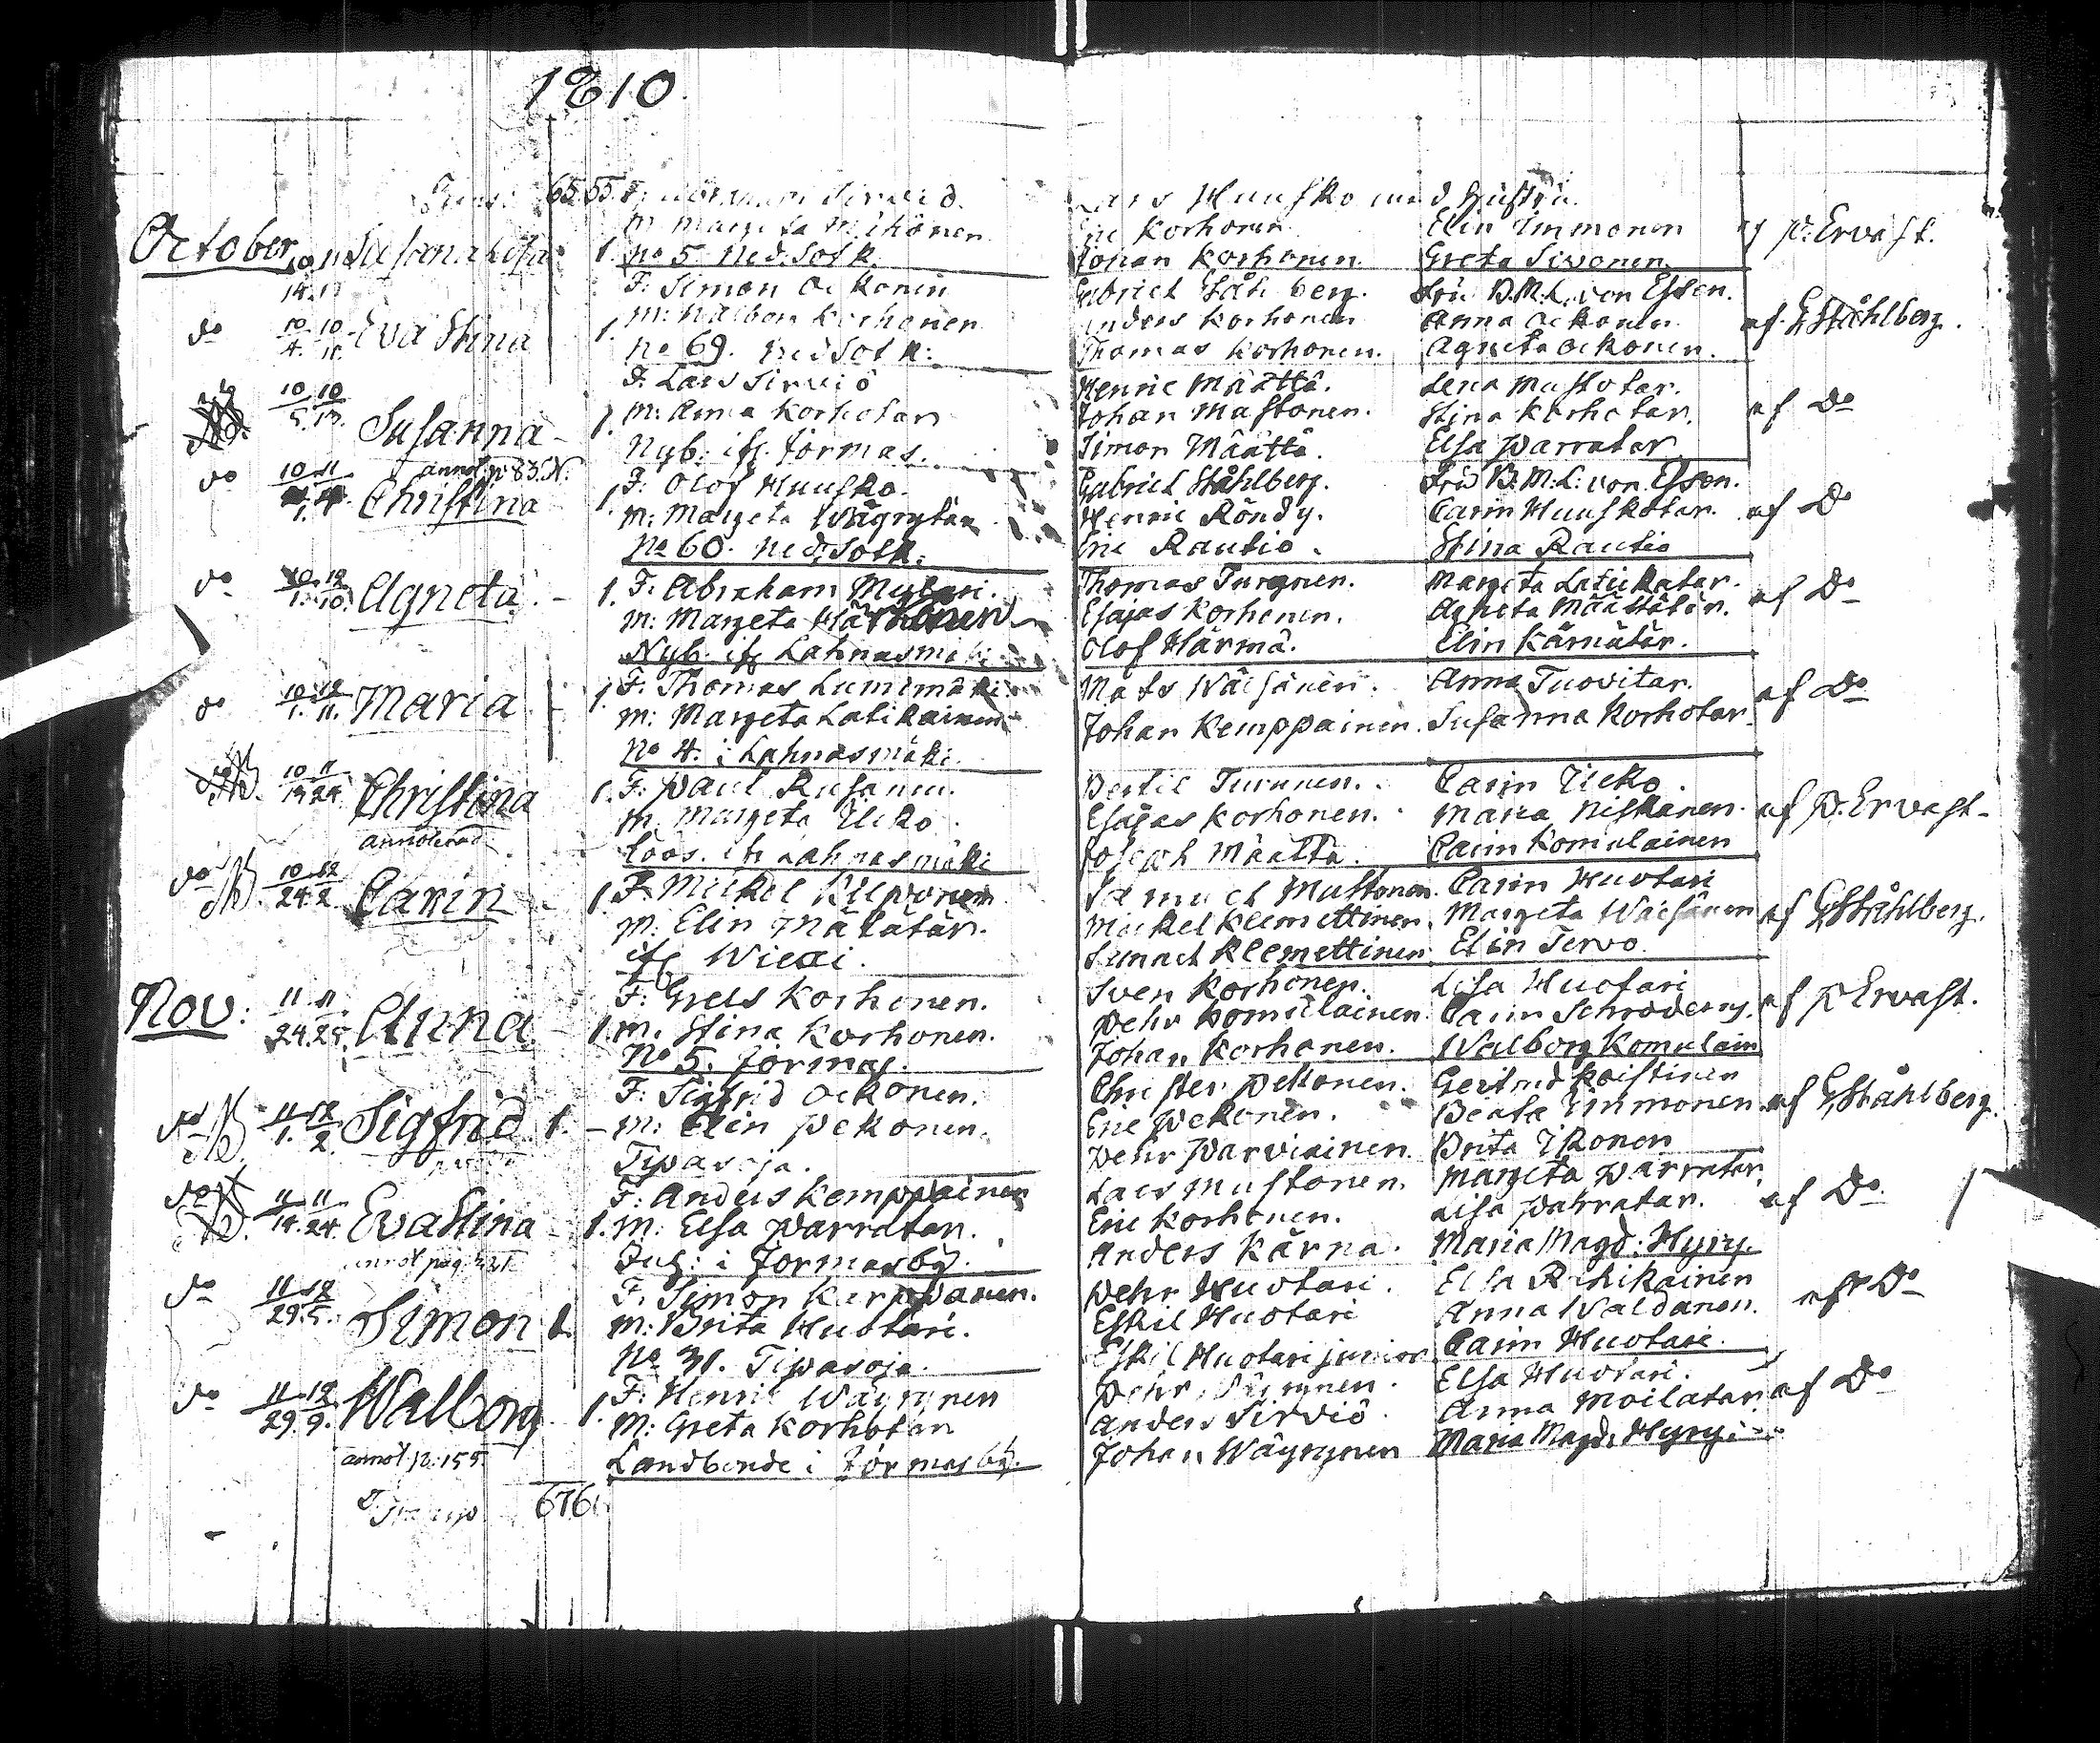 1810
65 55 F:
Lars Huusko med hustru.
October Susanna Lisa 1. M: Margeta Mihönen
Eric Korhonen Elin Immonen af P. Ervast.
No 5 Ned. Sotk.
Johan Korhonen. Greta Sivonen.
F: Simon Ockonen
Gabriel Ståhlberg. Fru B.M.L. von Essen.
do 10 10 / 4. 11. Eva Stina 1. M: Walborg Korhonen
Anders Korhonen Anna Ockonen af G Ståhlberg.
No 69. Ned Sotk:
Thomas Korhonen. Agneta Ockonen.
F: Lars Sirviö
Henric Määttä. Lena Mustotar.
10 10 / 5. 13. Susanna - 1. M: Anna Korhotar
Johan Mustonen. Stina Korhotar. af Do
annot p 83. N.
Nyb: ifr. Jormas.
Simon Määttä. Elsa Parratar
do 10 11 Christina 1. F: Olof Huusko.
Gabriel Ståhlberg. Fru B.M.L. von Essen.
M: Margeta Wägrytär
Henric Röndy. Carin Huuskotar. af Do
No 60. Ned. Sotk.
Eric Rautio. Stina Rautio
do 10 12 / 1. 10. Agneta. - 1. F: Abraham Myllari.
Thomas Turunen. Margeta Latikatar. af Do
M: Margeta
Esajas Korhonen. Agneta Määttätär.
Nyb. ifr Lahnasmäki
Olof Härmä. Elin Kärnätär.
do 10 12 / 1. 11. Maria 1. F: Thomas Lumimäki
Mats Wäisänen. Anna Tuovitar. af Do
M: Margeta Latikainen
Johan Kemppainen. Susanna Korhotar
No 4. i Lahnasmäki.
10 11 Christina 1. F: Paul Rusanen.
Bertil Turunen. Carin Ücko.
annoterad
M: Margeta Ücko.
Esajas Korhonen. Maria Niskanen. af P. Ervast-
Löös. ifr Lahnasmäki
Joseph Määttä. Carin Komulainen
do 10 12 / 24. 2. Carin 1. F: Mickel Kilponen
Samuel Mustonen. Carin Huotari
M: Elin Mälätär.
Mickel Klemettinen. Margeta Wäisänen af G Ståhlberg.
ifr Wiexi.
Samuel Klemettinen Elin Tervo.
Nov: 11 11 / 24. 25. Anna 1. F: Grels Korhonen.
Sven Korhonen. Lisa Huotari
M: Stina Korhonen.
Pehr Komulainen Carin Schroderus. af P Ervast.
No 5. Jormas.
Johan Korhonen. Walborg Komulain
do 11 12 / 1. 2. Sigfrid 1. - F: Sigfrid Ockonen.
Christer Pekonen. Gertrud Koistinen
M: Elin Pekonen.
Eric Pekonen. Beata Immonen af G Ståhlberg.
Tipasoja.
Pehr Parviainen. Brita Ikonen
do 11 11 / 14. 24. Eva Stina - 1. F: Anders Kemppainen
Lars Mustonen. Margeta Parratar.
M: Elsa Parratar.
Eric Korhonen. Lisa Parratar. af Do.
annot pag.
Inh: i Jormasby.
Anders Kärna. Maria Magd: Hyry.
do 11 12 / 29. 5. Simon 1. F: Simon
Pehr Huotari. Elsa
M: Brita Huotari.
Eskil Huotari Anna Waldanen. af Do
No 31. Tipasoja.
Eskil Huotari junior Carin Huotari.
do 11 12 / 29. 9. Walborg 1. F: Henric Wäyrynen
Pehr Elsa Huotari.
M: Greta Korhotar
Anders Sirviö. Anna Moilatar. af Do
annot p: 155.
Landbonde i Jormasby.
Johan Wäyrynen Maria Magd: Hyry.